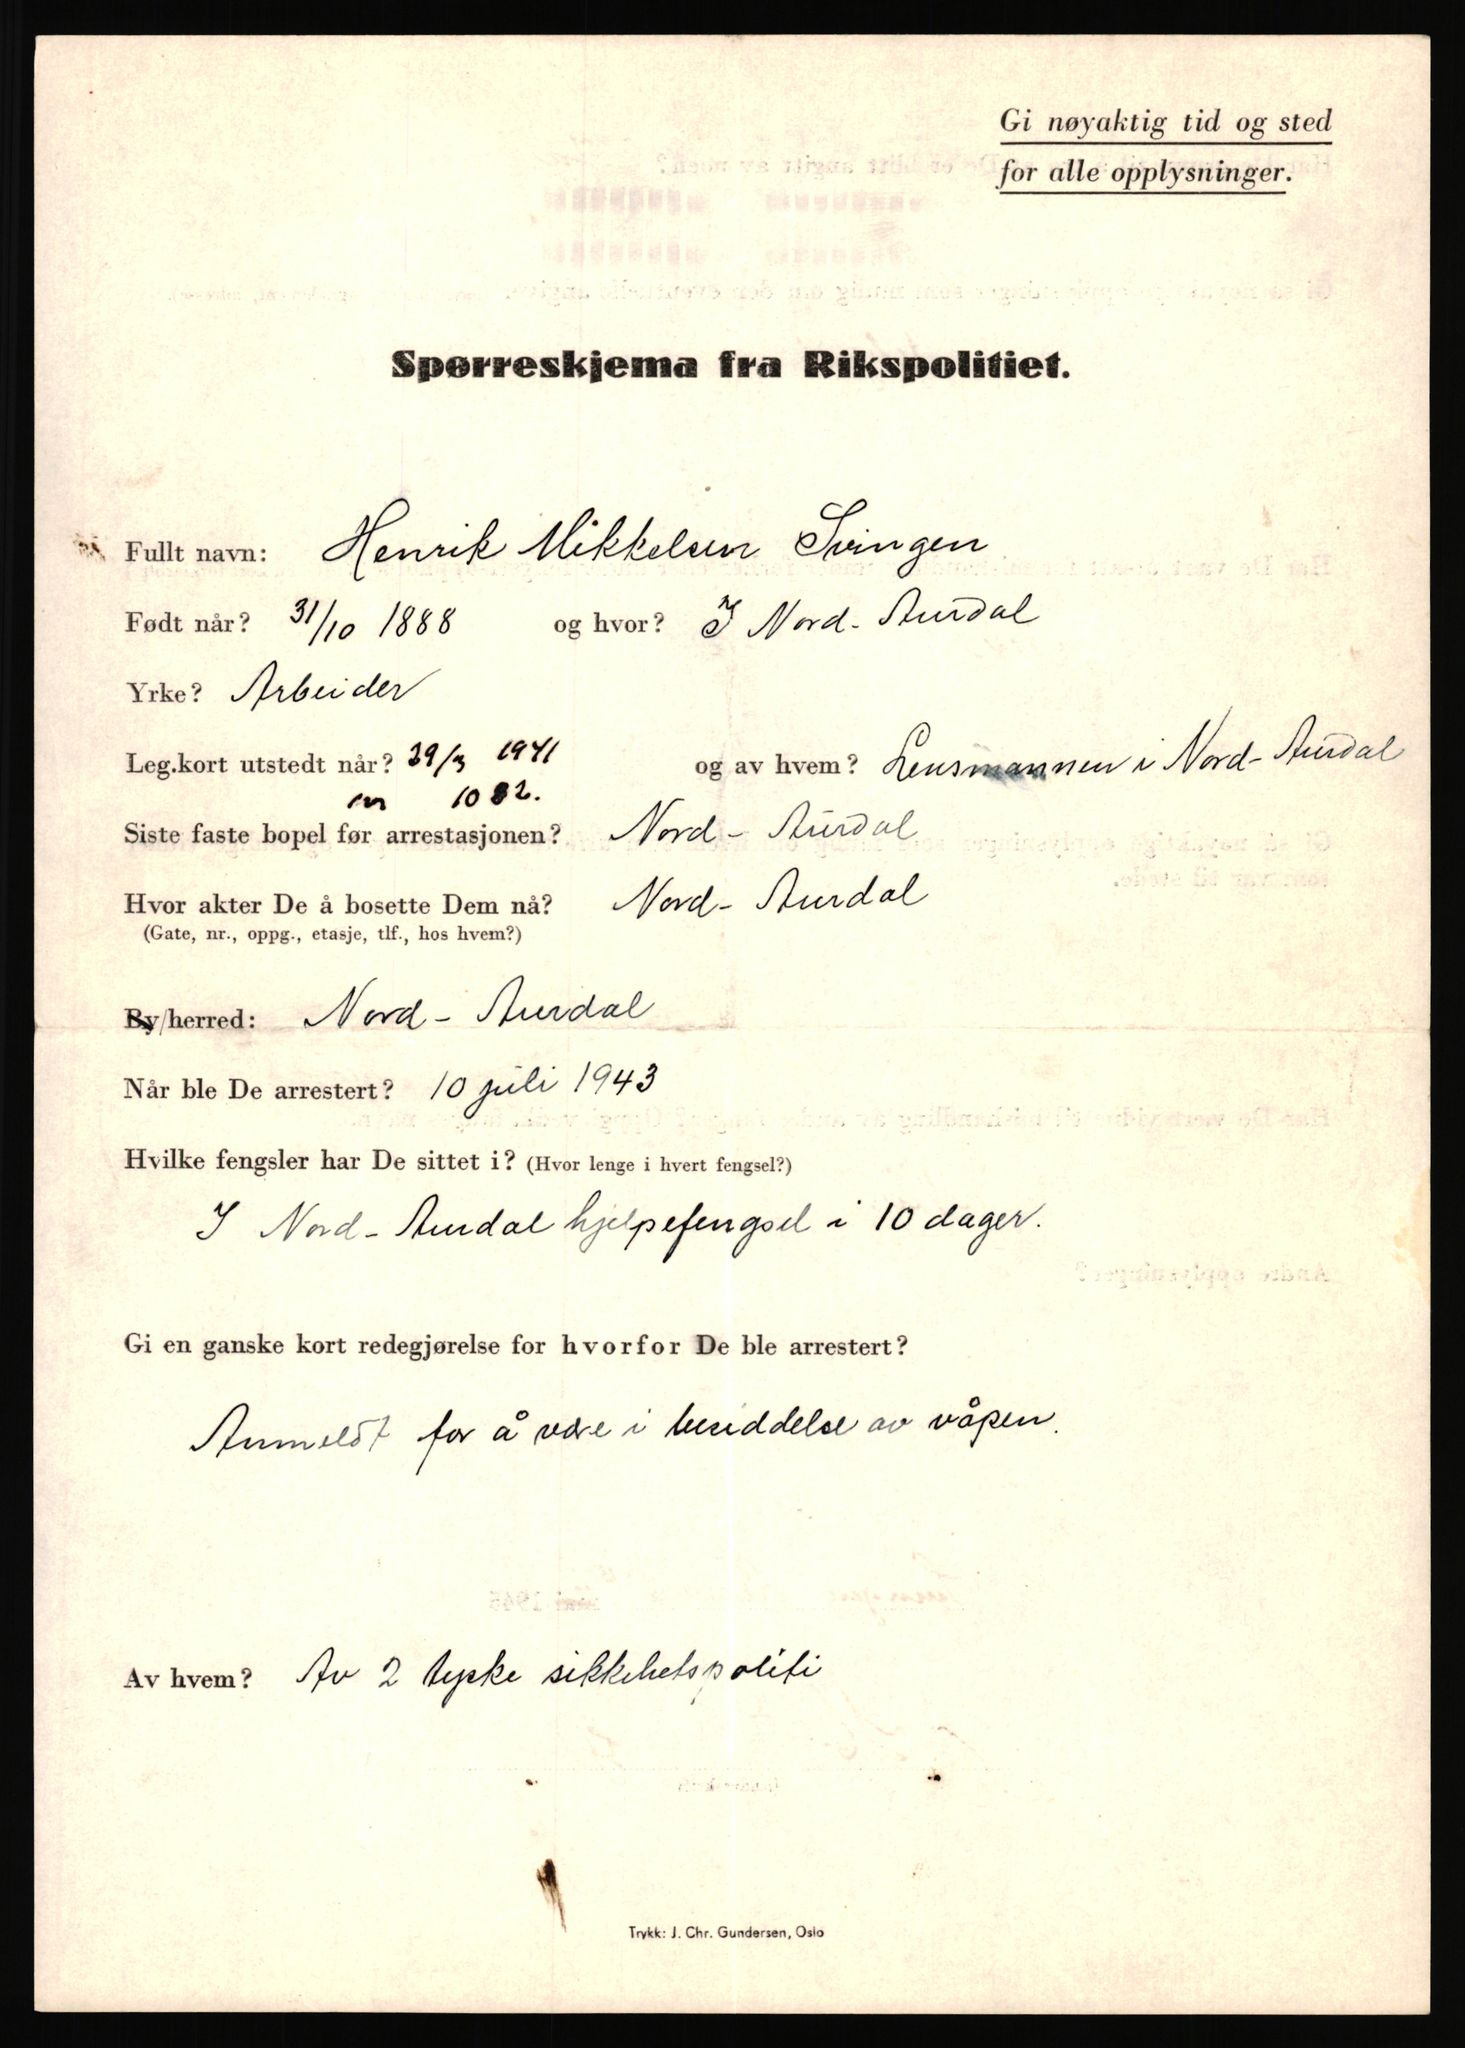 Gi nøyaktig tid og sted
for alle opplysninger.
Spørreskjema fra Rikspolitiet.
Fullt navn: Henrik Mikkelsen Svingen
Født når? 31/10 1888 og hvor? I Nord-Aurdal
Yrke? Arbeider
Leg.kort utstedt når? 29/3 1941 og av hvem? Lensmannen i Nord-Aurdal
nr 1082.
Siste faste bopel før arrestasjonen? Nord-Aurdal
Hvor akter De å bosette Dem nå? Nord-Aurdal
(Gate, nr., oppg., etasje, tlf., hos hvem?)
By/herred: Nord-Aurdal
Når ble De arrestert? 10 juli 1943
Hvilke fengsler har De sittet i? (Hvor lenge i hvert fengsel?)
I Nord-Aurdal hjelpefengsel i 10 dager.
Gi en ganske kort redegjørelse for hvorfor De ble arrestert?
Anmeldt for å være i besiddelse av våpen.
Av hvem? Av 2 tyske sikkehetspoliti
Trykk: J. Chr. Gundersen, Oslo